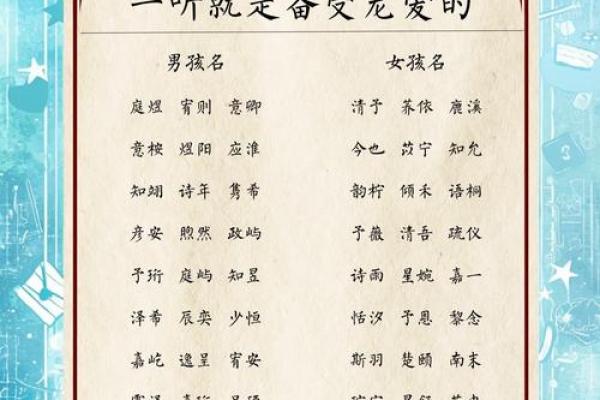 一听就是备受宠爱的
男孩名 女孩名
庭煜 宥则 意卿 清予 荞依 鹿溪
意桉 煜阳 应淮 今也 苡宁 知允
知翊 诗年 隽希 韵柠 倾禾 语桐
彦安 煦然 政屿 予薇 清吾 疏仪
予珩 庭屿 知昱 诗雨 星婉 嘉一
泽希 辰奕 少恒 恬汐 予恩 黎念
嘉屹 逸呈 宥安 斯羽 楚颐 南末